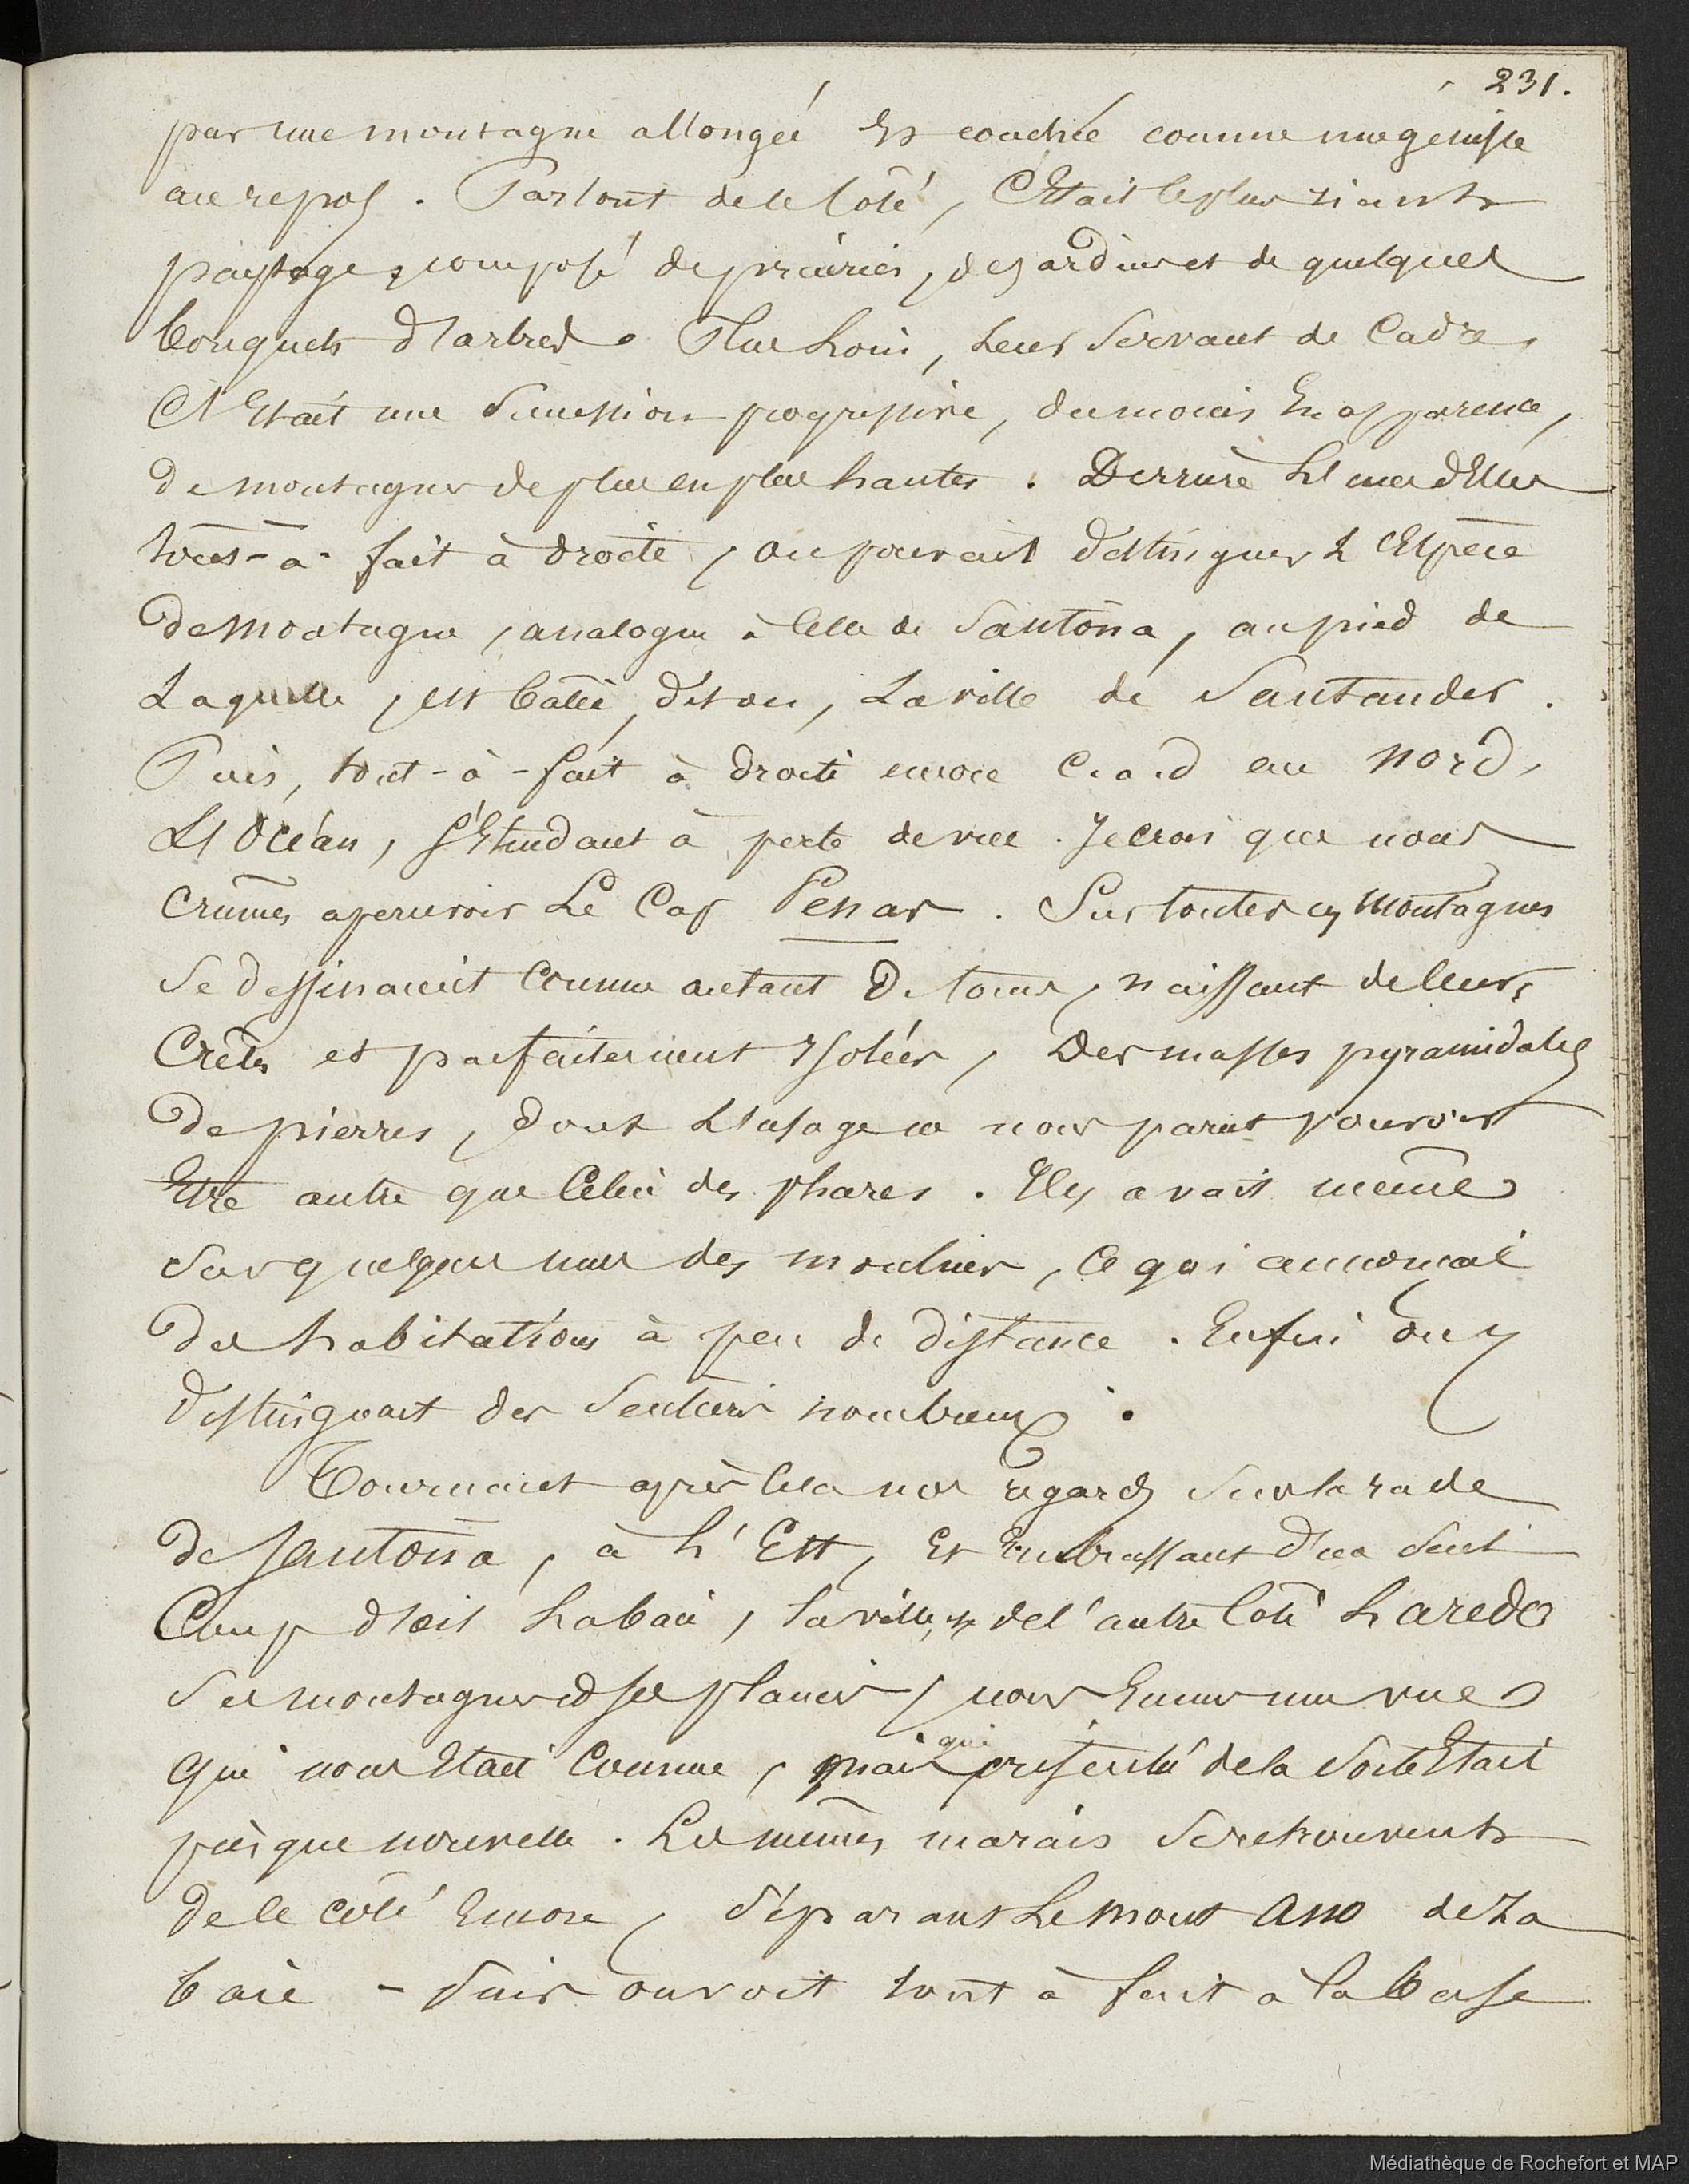 231.
par une montagne allongée et couchée comme une genisse
au repos. Partout de ce Côté, C'Etait le plus riant
paysage, composé de prairies, de jardins et de quelques
bouquets d'arbres. Plus Loin, Leur Servant de Cadre,
C'Etait une Succession progressive, du moins En apparence,
de montagnes de plus en plus hautes. Derrière L'une d'Elles
tout-à-fait à droite, on pouvait distinguer L'Espèce
de montagne, analogue à Celle de Santona, au pied de
Laquelle, est batie, dit on, La ville de Santander.
Puis, tout-à-fait à droite encore c.a.d au nord,
L'Océan, s'Etendant à perte de vue. Je crois que nous
crûmes apercevoir Le Cap Penas. Sur toutes ces montagnes
Se dessinaient Comme autant de tours, naissant de leurs
Crêtes et parfaitement Isolées, Des masses pyramidales
de pierres, dont L'usage ne nous parut pouvoir
Etre autre que Celui des phares. Il y avait même
Sur quelques unes des moulins, Ce qui annonçait
des habitations à peu de distance. Enfin on y
distinguait des Sentiers nombreux.
Tournant après Cela nos regards Sur la rade
de Santona, à L'Est, Et Embrassant d'un Seul
Coup d'oeil La baie, La ville, et de l'autre Côté Laredo
Ses montagnes et ses plaines, nous Eumes une vue
qui
qui nous Etait Connue, mais présentée de la Sorte Etait
presque nouvelle. Les mêmes marais Se retrouvent
de ce côté Encore, Séparant Le mont Ano de La
baie - Puis on voit tout à fait à La base
Médiathèque de Rochefort et MAP